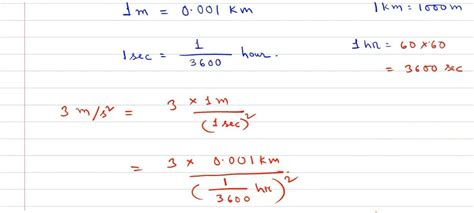 1m = 0.001 km
1km = 1000m
1sec = 1/3600 hour.
1 hr = 60 x 60
= 3600 sec
3 m/s² = 3 x 1m / (1 sec)²
= 3 x 0.001 km / (1/3600 hr)²